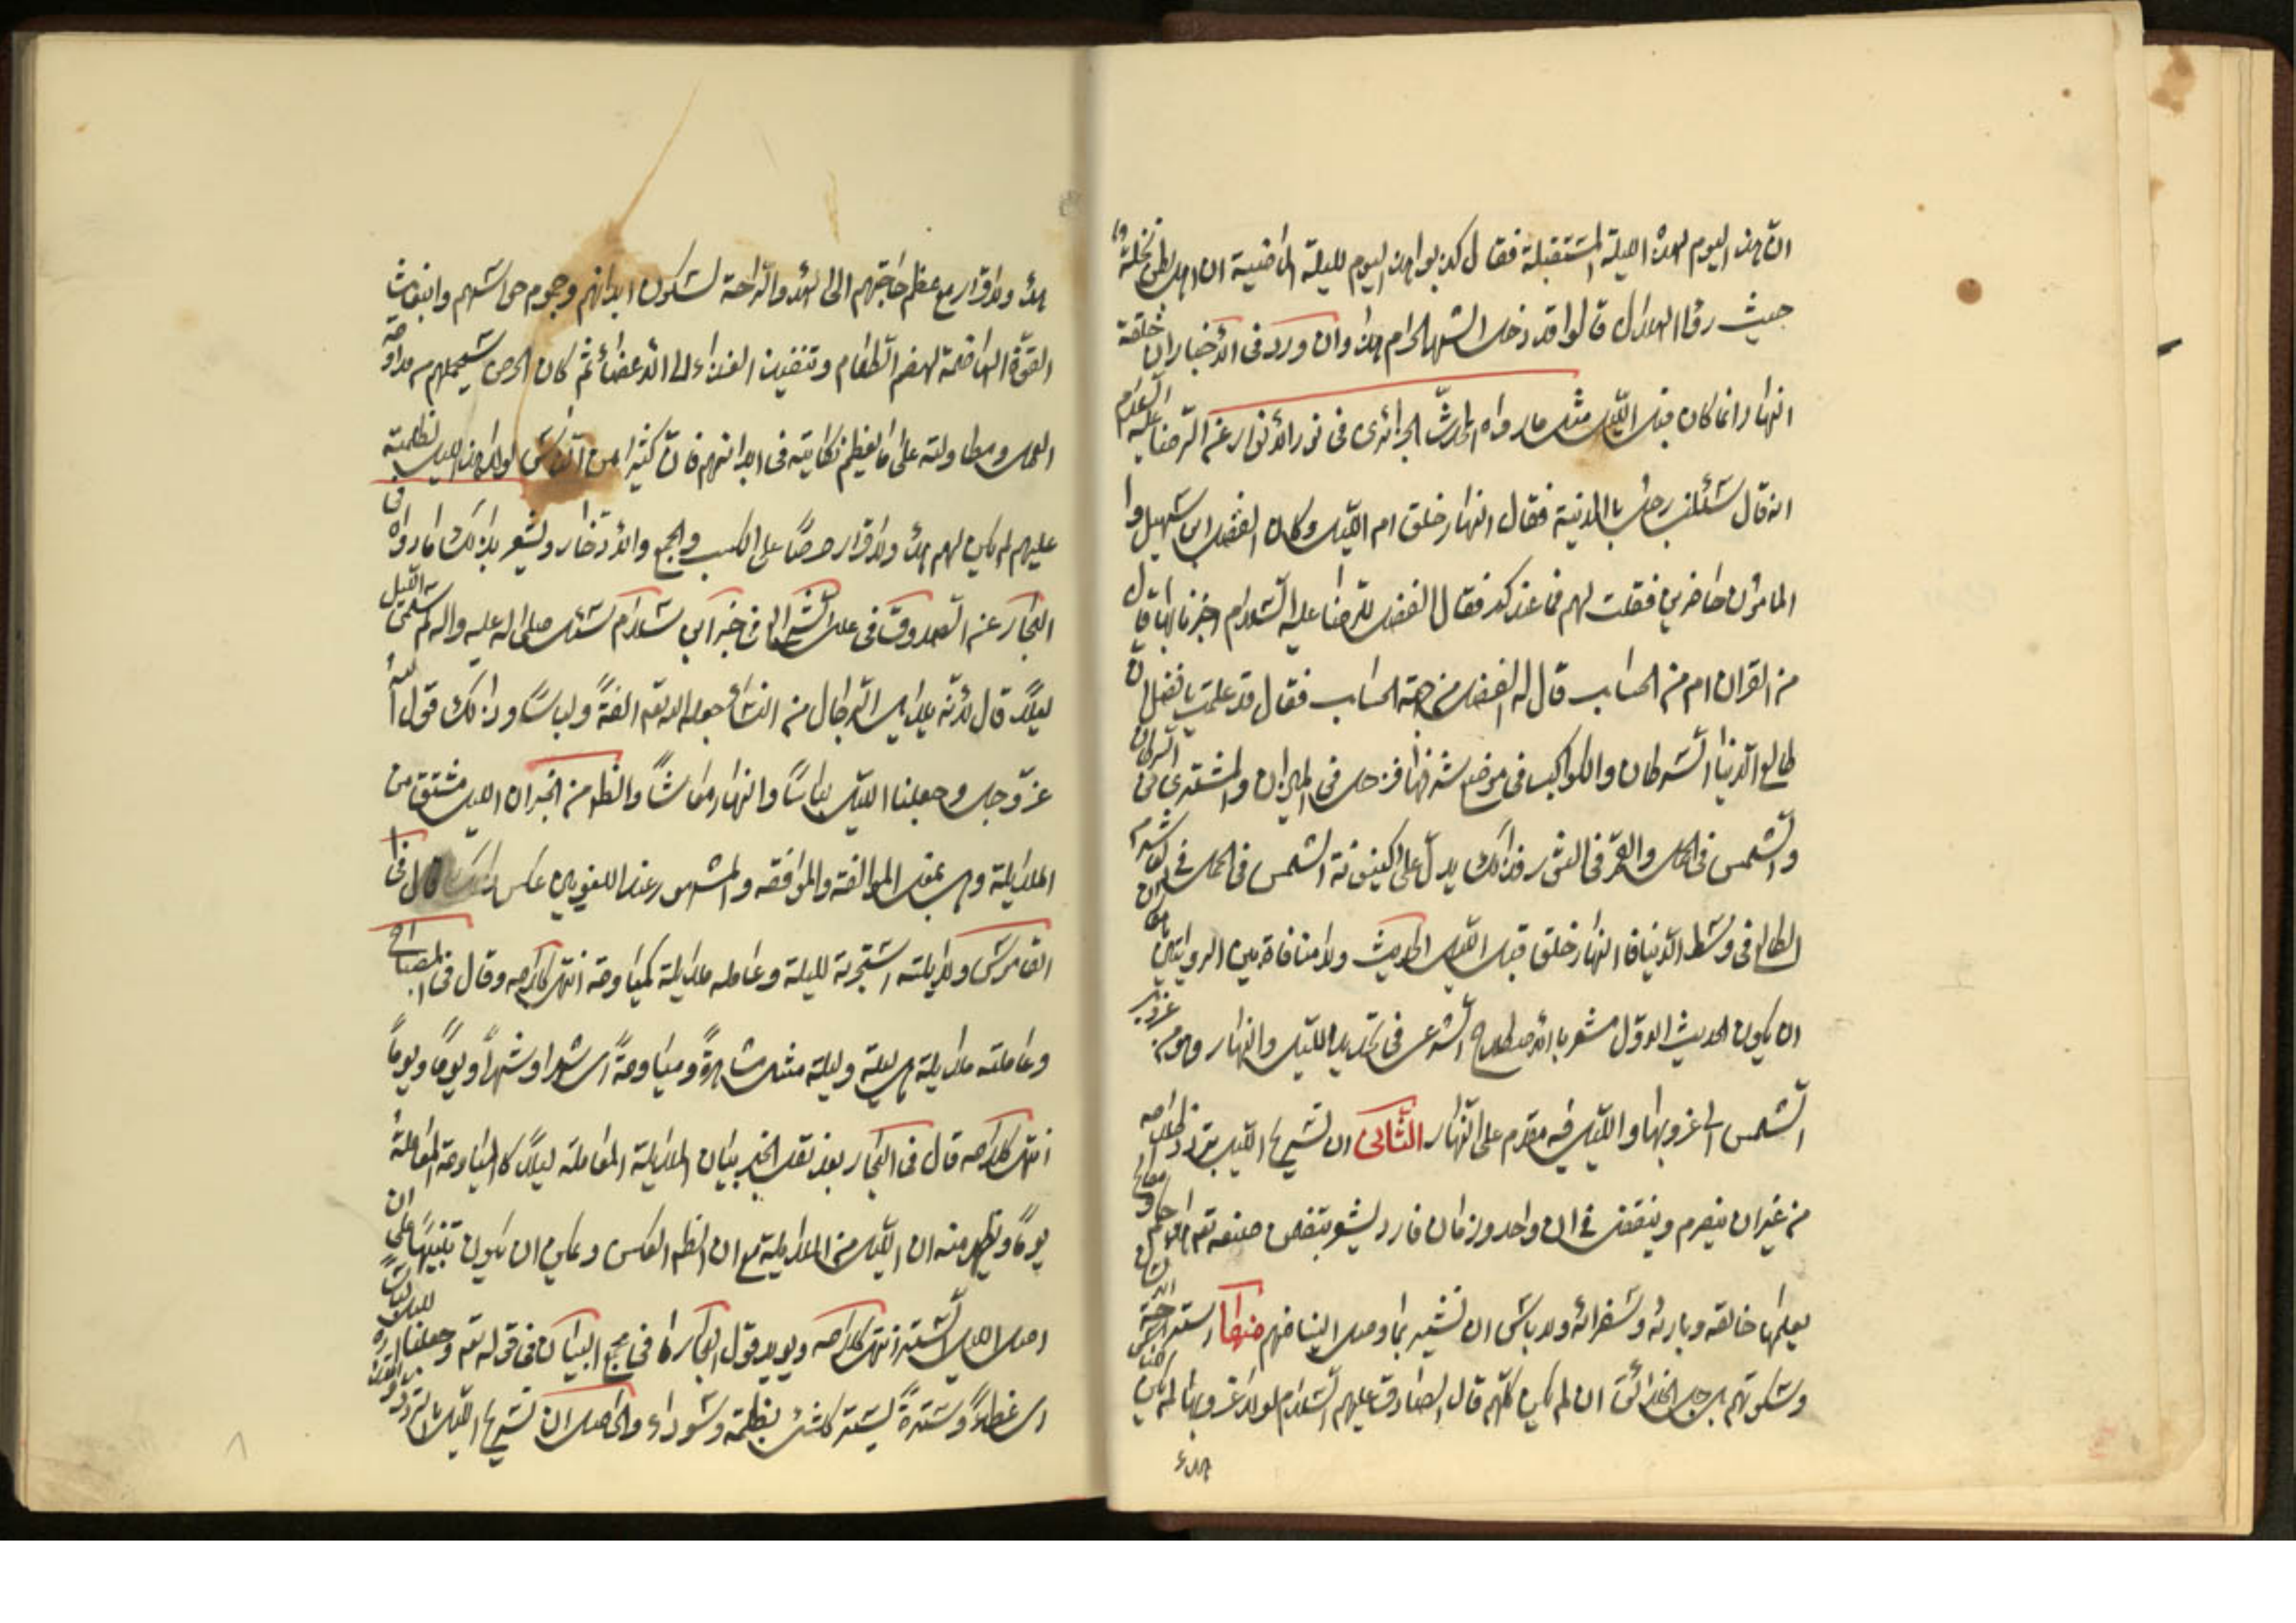 ان هذا اليوم لهذه الليلة المستقبلة فقال كذبوا هذا اليوم لليلة الماضية ان اهل بطن نخلة
حيث رؤا الهلال قالوا قد دخل الشهر الحرام هذا وان ورد فى الأخبار ان خلقة
النهار انما كان قبل الليل مثل ما رواه المحدث الجزائرى فى نور الأنوار عن الرضا عليه السلام
انه قال سئلنى رجل بالمدينة فقال النهار خلق ام الليل وكان الفضل ابن سهل وا
المامون حاضرين فقلت لهم فما عندكم فقال الفضل للرضا عليه السلام اخبرنا بها قال
من القران ام من الحساب قال له الفضل من جهة الحساب فقال قد علمت يا فضل ان
طالع الدنيا السرطان والكواكب فى موضع شرفها فزحل فى الميزان والمشترى فى السرطان
والشمس فى الحمل والقمر فى الثور فذلك يدل على كينونة الشمس فى الحمل فى العاشر من
الطالع فى وسط الدنيا فالنهار خلق قبل الليل الحديث ولا منافاة بين الروايتين
ان يكون الحديث الاول مشعر بالأصطلاح الشرعى فى تحديد الليل والنهار وهو من غروب
الشمس الى غروبها والليل فيه مقدم على النهار الثانى ان تسريح الليل بتردد ظلامه
من غير ان ينصرم وينقضى فى ان واحد وزمان فارد ليشعر بتضمن صنعه تعم مصالح وحكم
يعلمها خالقه وبارئه وسفرائه ولا باس ان نشير بما وصل الينا منهم منها استراحة الناس
وسكوتهم بل جل الخلائق ان لم يكن كلهم قال الصادق عليهم السلام لولا غروبها لم يكن
للناس
هدء
هدء ولا قرار مع عظم حاجتهم الى الهدء والراحة لسكون ابدانهم وجموم حواسهم وانبعاث
القوة الهاضمة لهضم الطعام وتنفيذ الغذاء الى الأعضاء ثم كان الحرص سيحملهم من مداومة
العمل ومطاولته على ما يعظم نكايته فى ابدانهم فان كثيرا من الناس لولا هذا الليل بظلمته
عليهم لم يكن لهم هدء ولا قرار حرصا على الكسب والجمع والأدخار ويشعر بذلك ما رواه فى
البحار عن الصدوق فى علل الشرايع فى خبر ابن سلام سئل صلى الله عليه واله لم سمى الليل
ليلا قال لأنه يلايل الرجال من النساء جعله الله تعم الفة ولباسا وذلك قول الله
عز وجل وجعلنا الليل لباسا والنهار معاشا والظهر من الخبر ان الليل مشتق من
الملايلة وهى بمعنى الموالفة والموافقة والمشهور عند اللغويين عكس ذلك قال فى
القاموس ولايلته استجرته لليلة وعامله ملايلة كمياومة انتهى كلامه وقال فى المصباح
وعاملته ملايلة اى ليلة وليلة مثل مشاهرة ومياومة اى شهرا وشهرا ويوما ويوما
انتهى كلامه قال فى البحار بعد نقل الخبر بيان الملايلة المعاملة ليلا كالمياومة المعاملة
يوما ويظهر منه ان الليل من الملايلة مع ان الظاهر العكس ويمكن ان يكون تنبيها على ان
اصل الليل الستر انتهى كلامه ويويد قول البحار ما فى مجمع البيان فى قوله تعم وجعلنا الليل لباسا
اى غطاء وسترة يستر كلشئ بظلمته وسواده والحاصل ان تسريح الليل